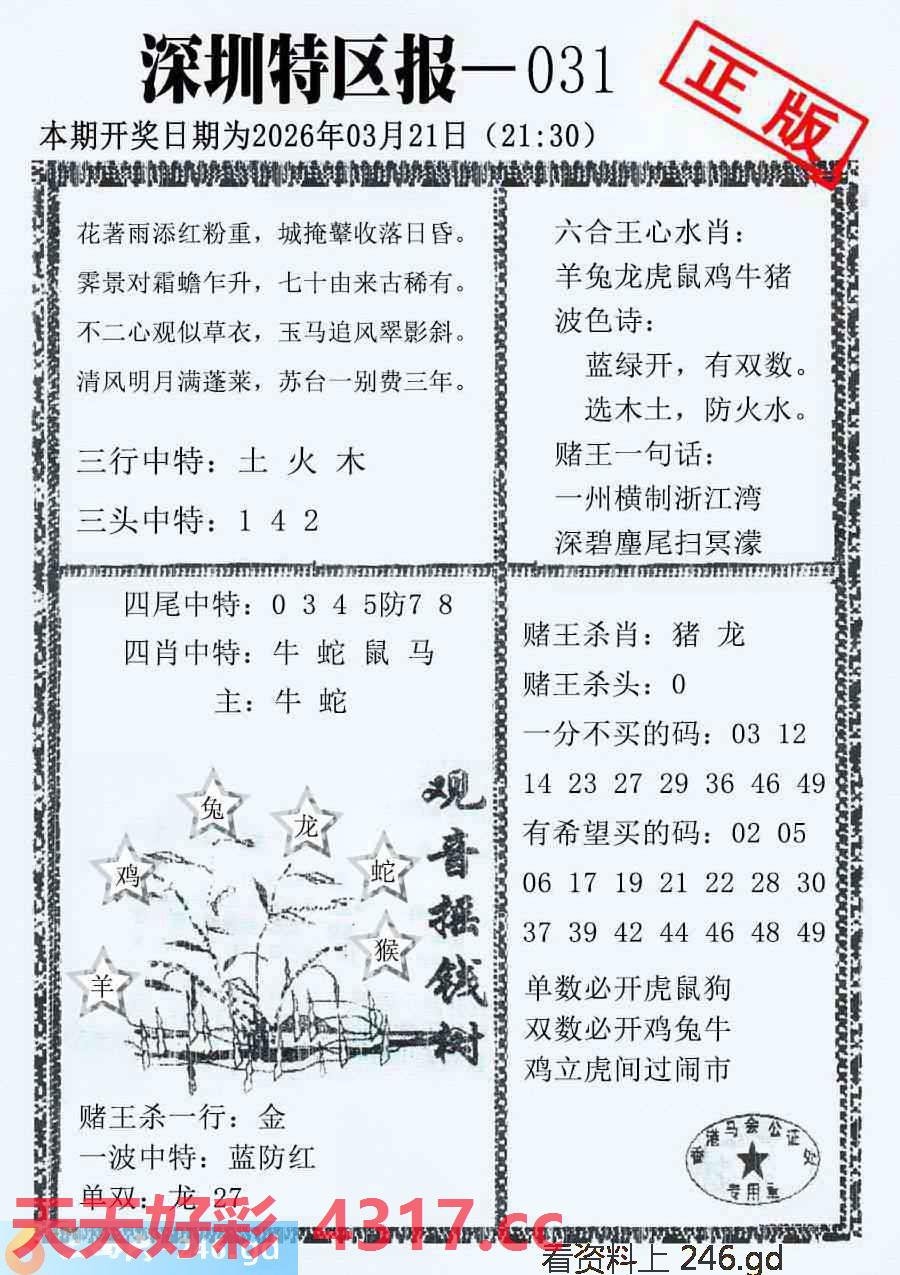 深圳特区报—031
正版
本期开奖日期为2026年03月21日（21:30）
花著雨添红粉重，城掩鼙收落日昏。
霁景对霜蟾乍升，七十由来古稀有。
不二心观似草衣，玉马追风翠影斜。
清风明月满蓬莱，苏台一别费三年。
三行中特：土 火 木
三头中特：1 4 2
六合王心水肖：
羊兔龙虎鼠鸡牛猪
波色诗：
蓝绿开，有双数。
选木土，防火水。
赌王一句话：
一州横制浙江湾
深碧麈尾扫冥濛
四尾中特：0 3 4 5防7 8
四肖中特：牛 蛇 鼠 马
主：牛 蛇
观音摇钱树
兔
龙
鸡
蛇
猴
羊
赌王杀一行：金
一波中特：蓝防红
单双：龙 27
赌王杀肖：猪 龙
赌王杀头：0
一分不买的码：03 12
14 23 27 29 36 46 49
有希望买的码：02 05
06 17 19 21 22 28 30
37 39 42 44 46 48 49
单数必开虎鼠狗
双数必开鸡兔牛
鸡立虎间过闹市
香港马会公证处
专用章
天天好彩 4317.cc
246.gd
看资料上 246.gd